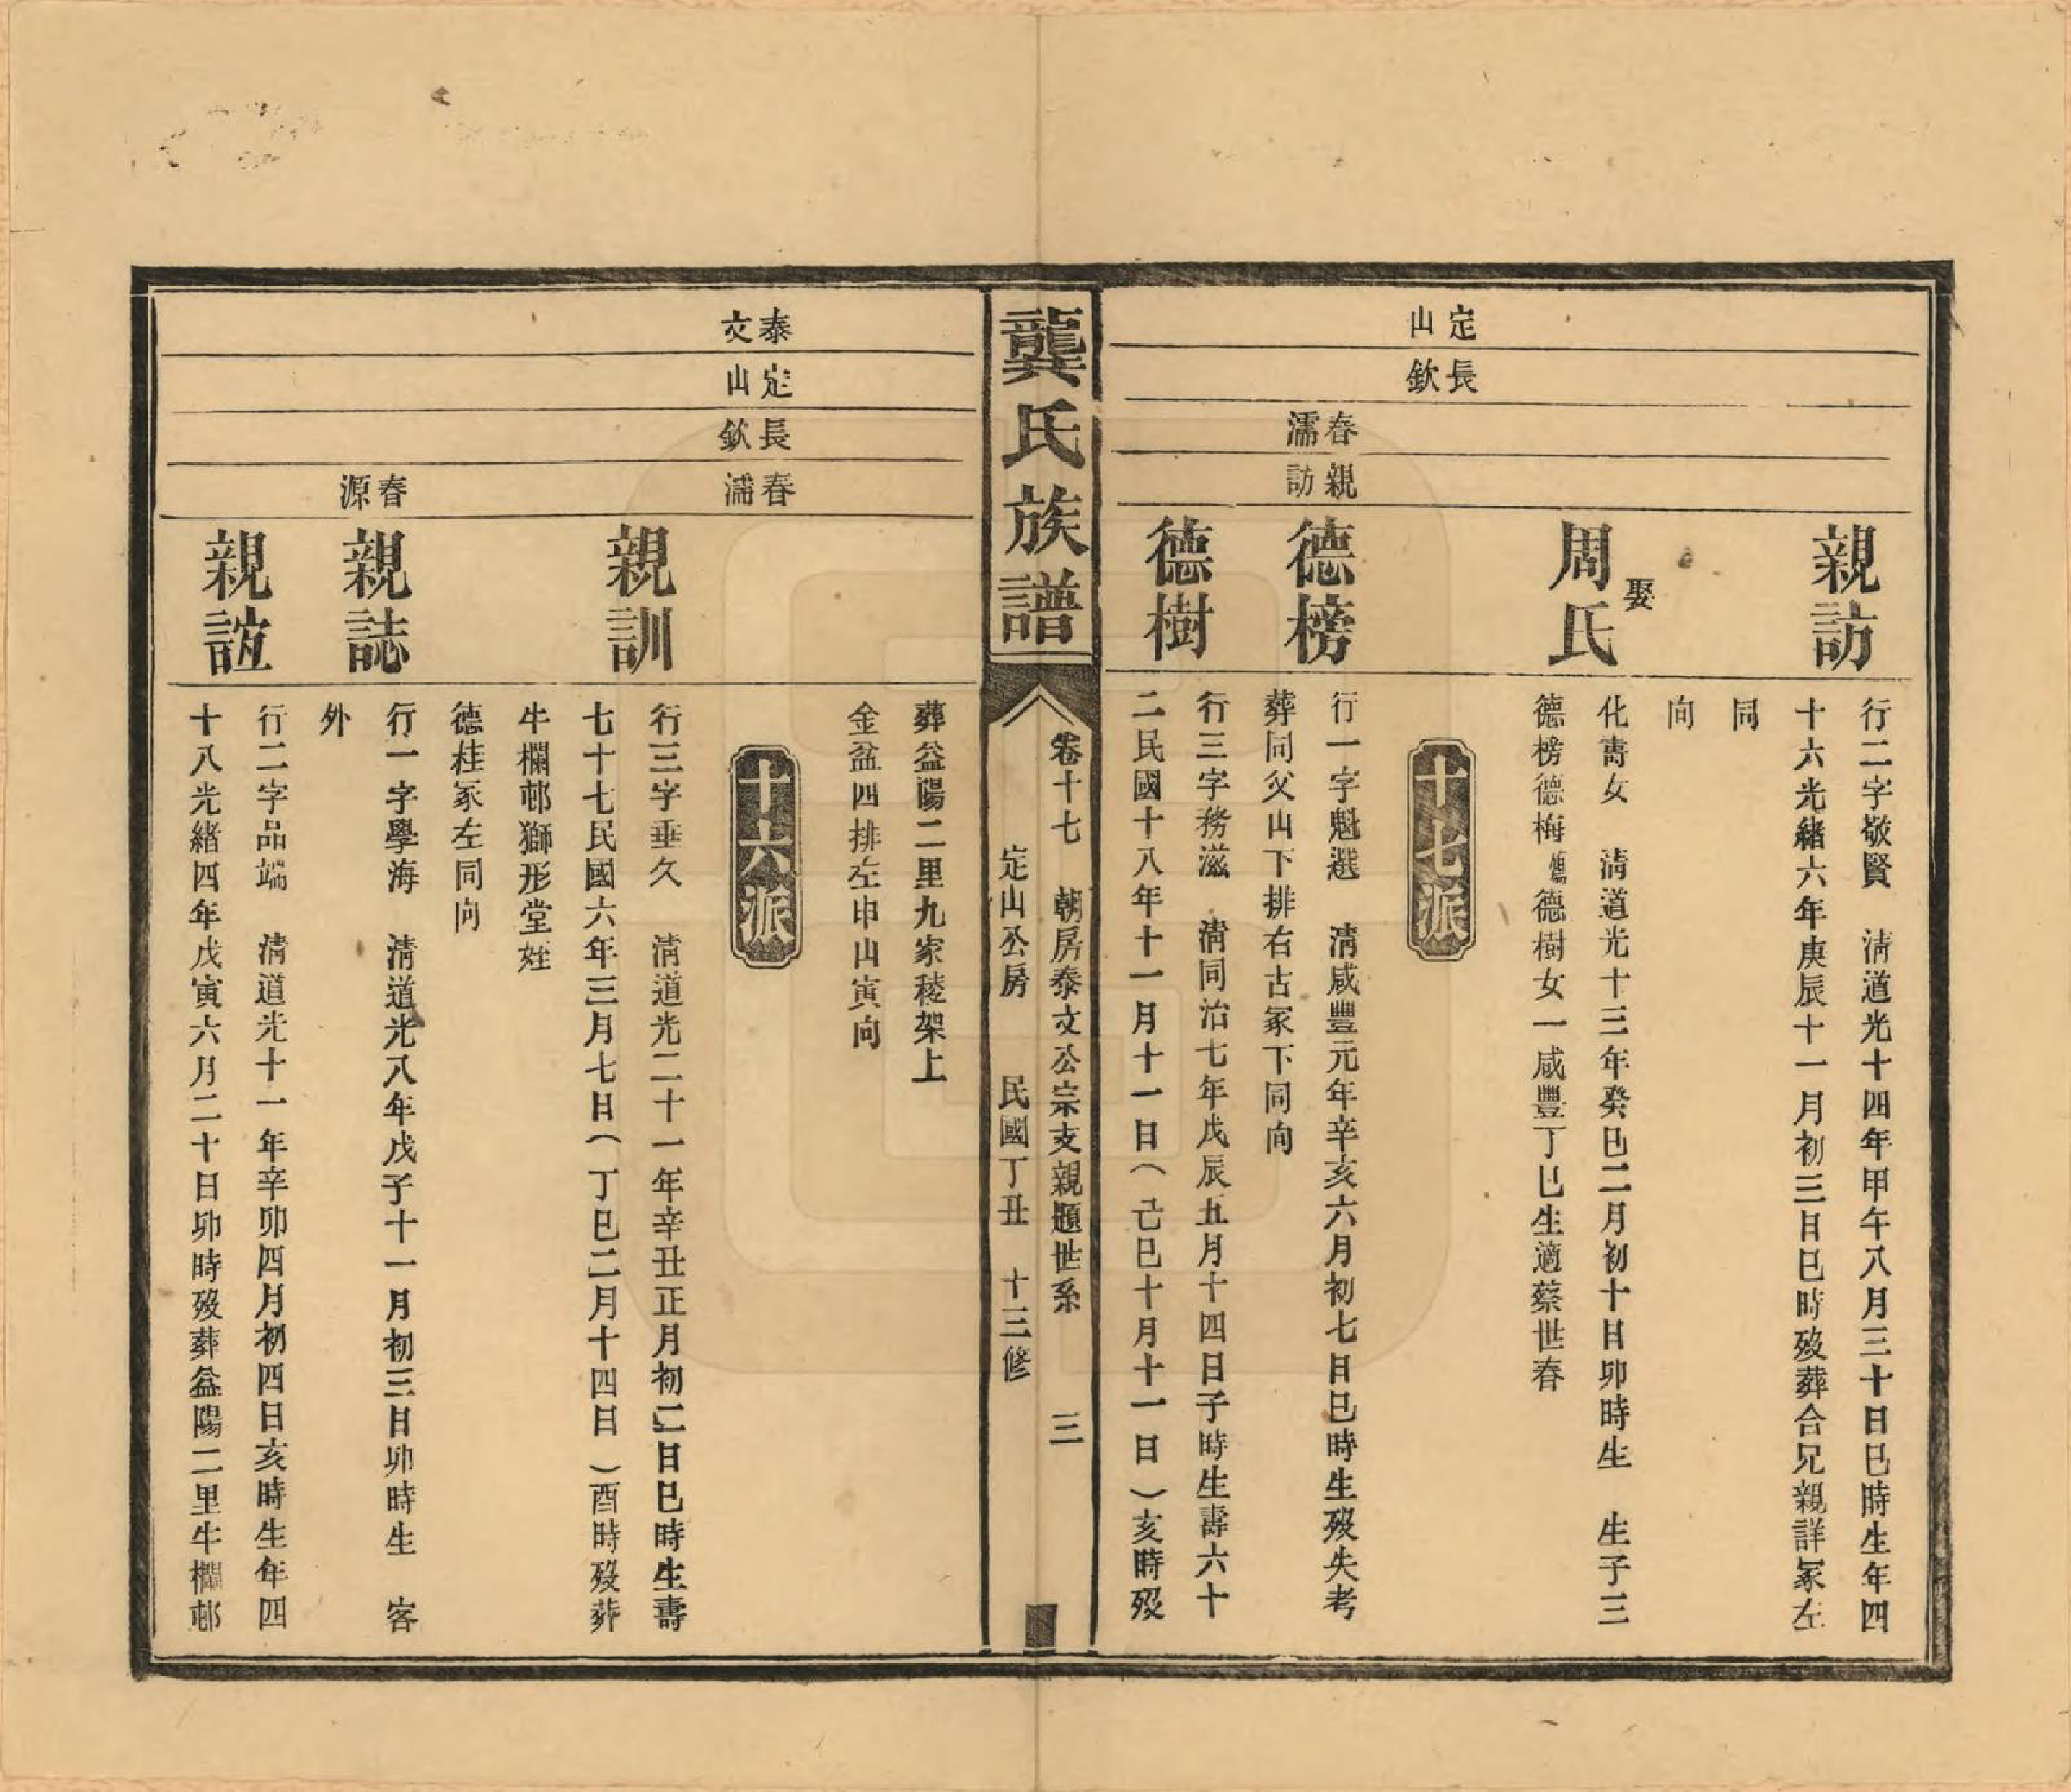 定山
長欽
春濡
親訪
親訪
行二字敬賢　清道光十四年甲午八月三十日巳時生年四
十六光緒六年庚辰十一月初三日巳時歿葬合兄親詳冢左
同
向
娶
周氏
化壽女　清道光十三年癸巳二月初十日卯時生　生子三
德榜德梅德樹女一咸豐丁巳生適蔡世春
十七派
德榜
行一字魁選　清咸豐元年辛亥六月初七日巳時生歿失考
葬同父山下排右古冢下同向
德樹
行三字務滋　清同治七年戊辰五月十四日子時生壽六十
二民國十八年十一月十一日（己巳十月十一日）亥時歿
龔氏族譜
卷十七　朝房泰文公宗支親題世系　三
定山公房　民國丁丑　十三修
葬益陽二里九家稜架上
金盆四排左申山寅向
泰文
定山
長欽
春濡
十六派
親訓
行三字垂久　清道光二十一年辛丑正月初二日巳時生壽
七十七民國六年三月七日（丁巳二月十四日）酉時歿葬
牛欄邨獅形堂姪
德桂冢左同向
春源
親誌
行一字學海　清道光八年戊子十一月初三日卯時生　客
外
親誼
行二字品端　清道光十一年辛卯四月初四日亥時生年四
十八光緒四年戊寅六月二十日卯時歿葬益陽二里牛欄邨